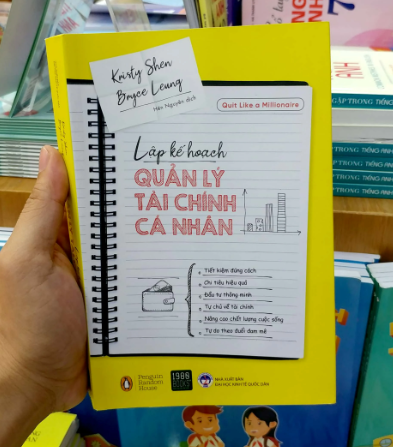 Kristy Shen
Bryce Leung
Hiền Nguyễn dịch
Quit Like a Millionaire
Lập kế hoạch
QUẢN LÝ
TÀI CHÍNH
CÁ NHÂN
Tiết kiệm đúng cách
Chi tiêu hiệu quả
Đầu tư thông minh
Tự chủ về tài chính
Nâng cao chất lượng cuộc sống
Tự do theo đuổi đam mê
Penguin
Random
House
1980
BOOKS
NHÀ XUẤT BẢN
ĐẠI HỌC KINH TẾ QUỐC DÂN
GẶP TRONG TIẾNG ANH
TRONG TIẾNG ANH
TRONG TIẾNG ANH
TRONG TIẾNG ANH